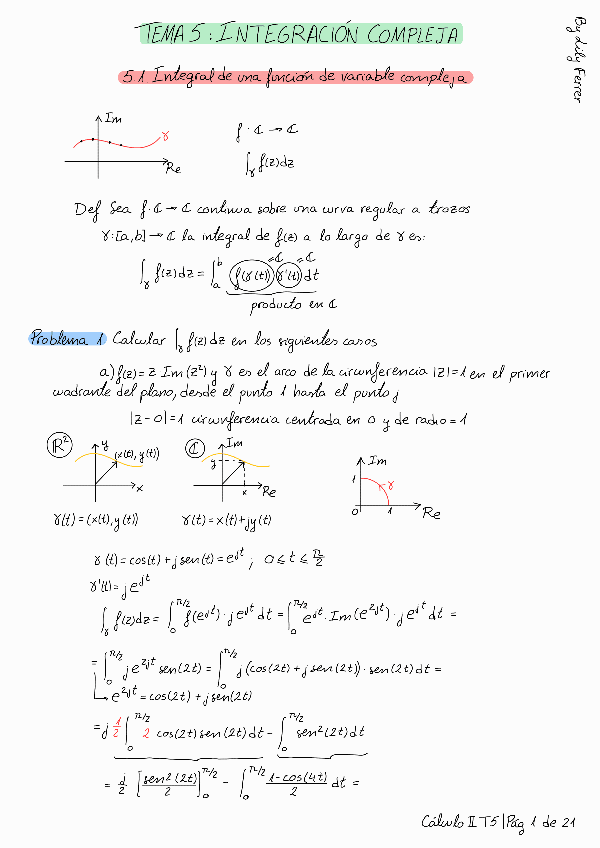 TEMA 5: INTEGRACIÓN COMPLEJA
By Lily Ferrer
5.1 Integral de una función de variable compleja
Im
γ
Re
f: ℂ → ℂ
∫γ f(z)dz
Def Sea f: ℂ → ℂ continua sobre una curva regular a trozos
γ: [a,b] → ℂ la integral de f(z) a lo largo de γ es:
∫γ f(z)dz = ∫_a^b f(γ(t)) γ'(t) dt
=ℂ =ℂ
producto en ℂ
Problema 1 Calcular ∫γ f(z)dz en los siguientes casos
a) f(z) = z Im(z²) y γ es el arco de la circunferencia |z|=1 en el primer
cuadrante del plano, desde el punto 1 hasta el punto j
|z-0|=1 circunferencia centrada en 0 y de radio = 1
ℝ² y (x(t), y(t)) x
ℂ Im y x Re
Im 1 γ 0 1 Re
γ(t) = (x(t), y(t)) γ(t) = x(t) + jy(t)
γ(t) = cos(t) + j sen(t) = e^{jt} ; 0 ≤ t ≤ π/2
γ'(t) = j e^{jt}
∫γ f(z)dz = ∫_0^{π/2} f(e^{jt}) · j e^{jt} dt = ∫_0^{π/2} e^{jt} · Im(e^{2jt}) · j e^{jt} dt =
= ∫_0^{π/2} j e^{2jt} sen(2t) = ∫_0^{π/2} j (cos(2t) + j sen(2t)) · sen(2t) dt =
e^{2jt} = cos(2t) + j sen(2t)
= j 1/2 ∫_0^{π/2} 2 cos(2t) sen(2t) dt - ∫_0^{π/2} sen²(2t) dt
= j/2 [sen²(2t)/2]_0^{π/2} - ∫_0^{π/2} 1-cos(4t)/2 dt =
Cálculo II T5 | Pág 1 de 21